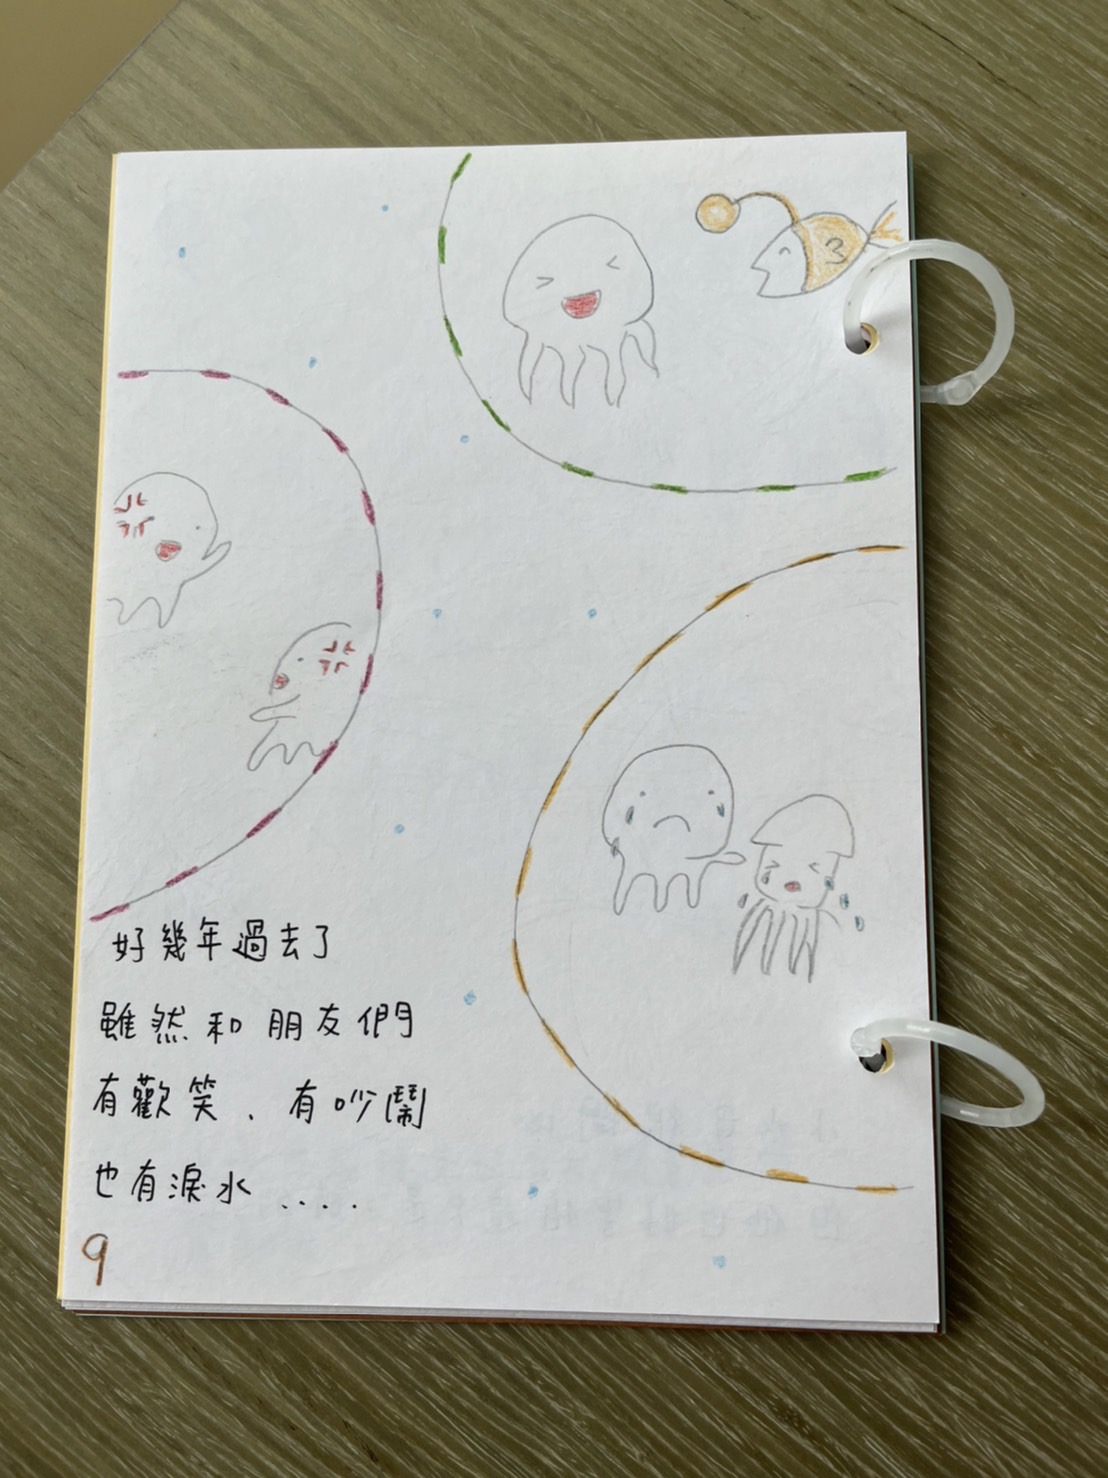 3
好幾年過去了
雖然和朋友們
有歡笑、有吵鬧
也有淚水....
9